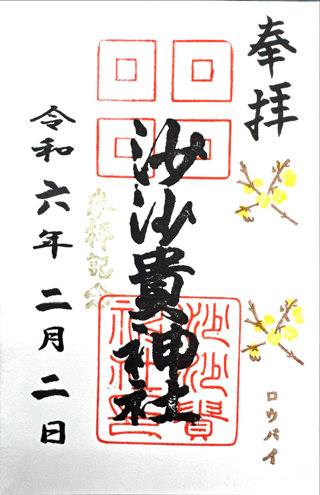 奉拝
沙沙貴神社
参拝記念
令和六年二月二日
ロウバイ
沙沙貴神社